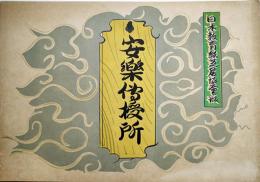 日本教育紙芝居協会版
安楽傳授所